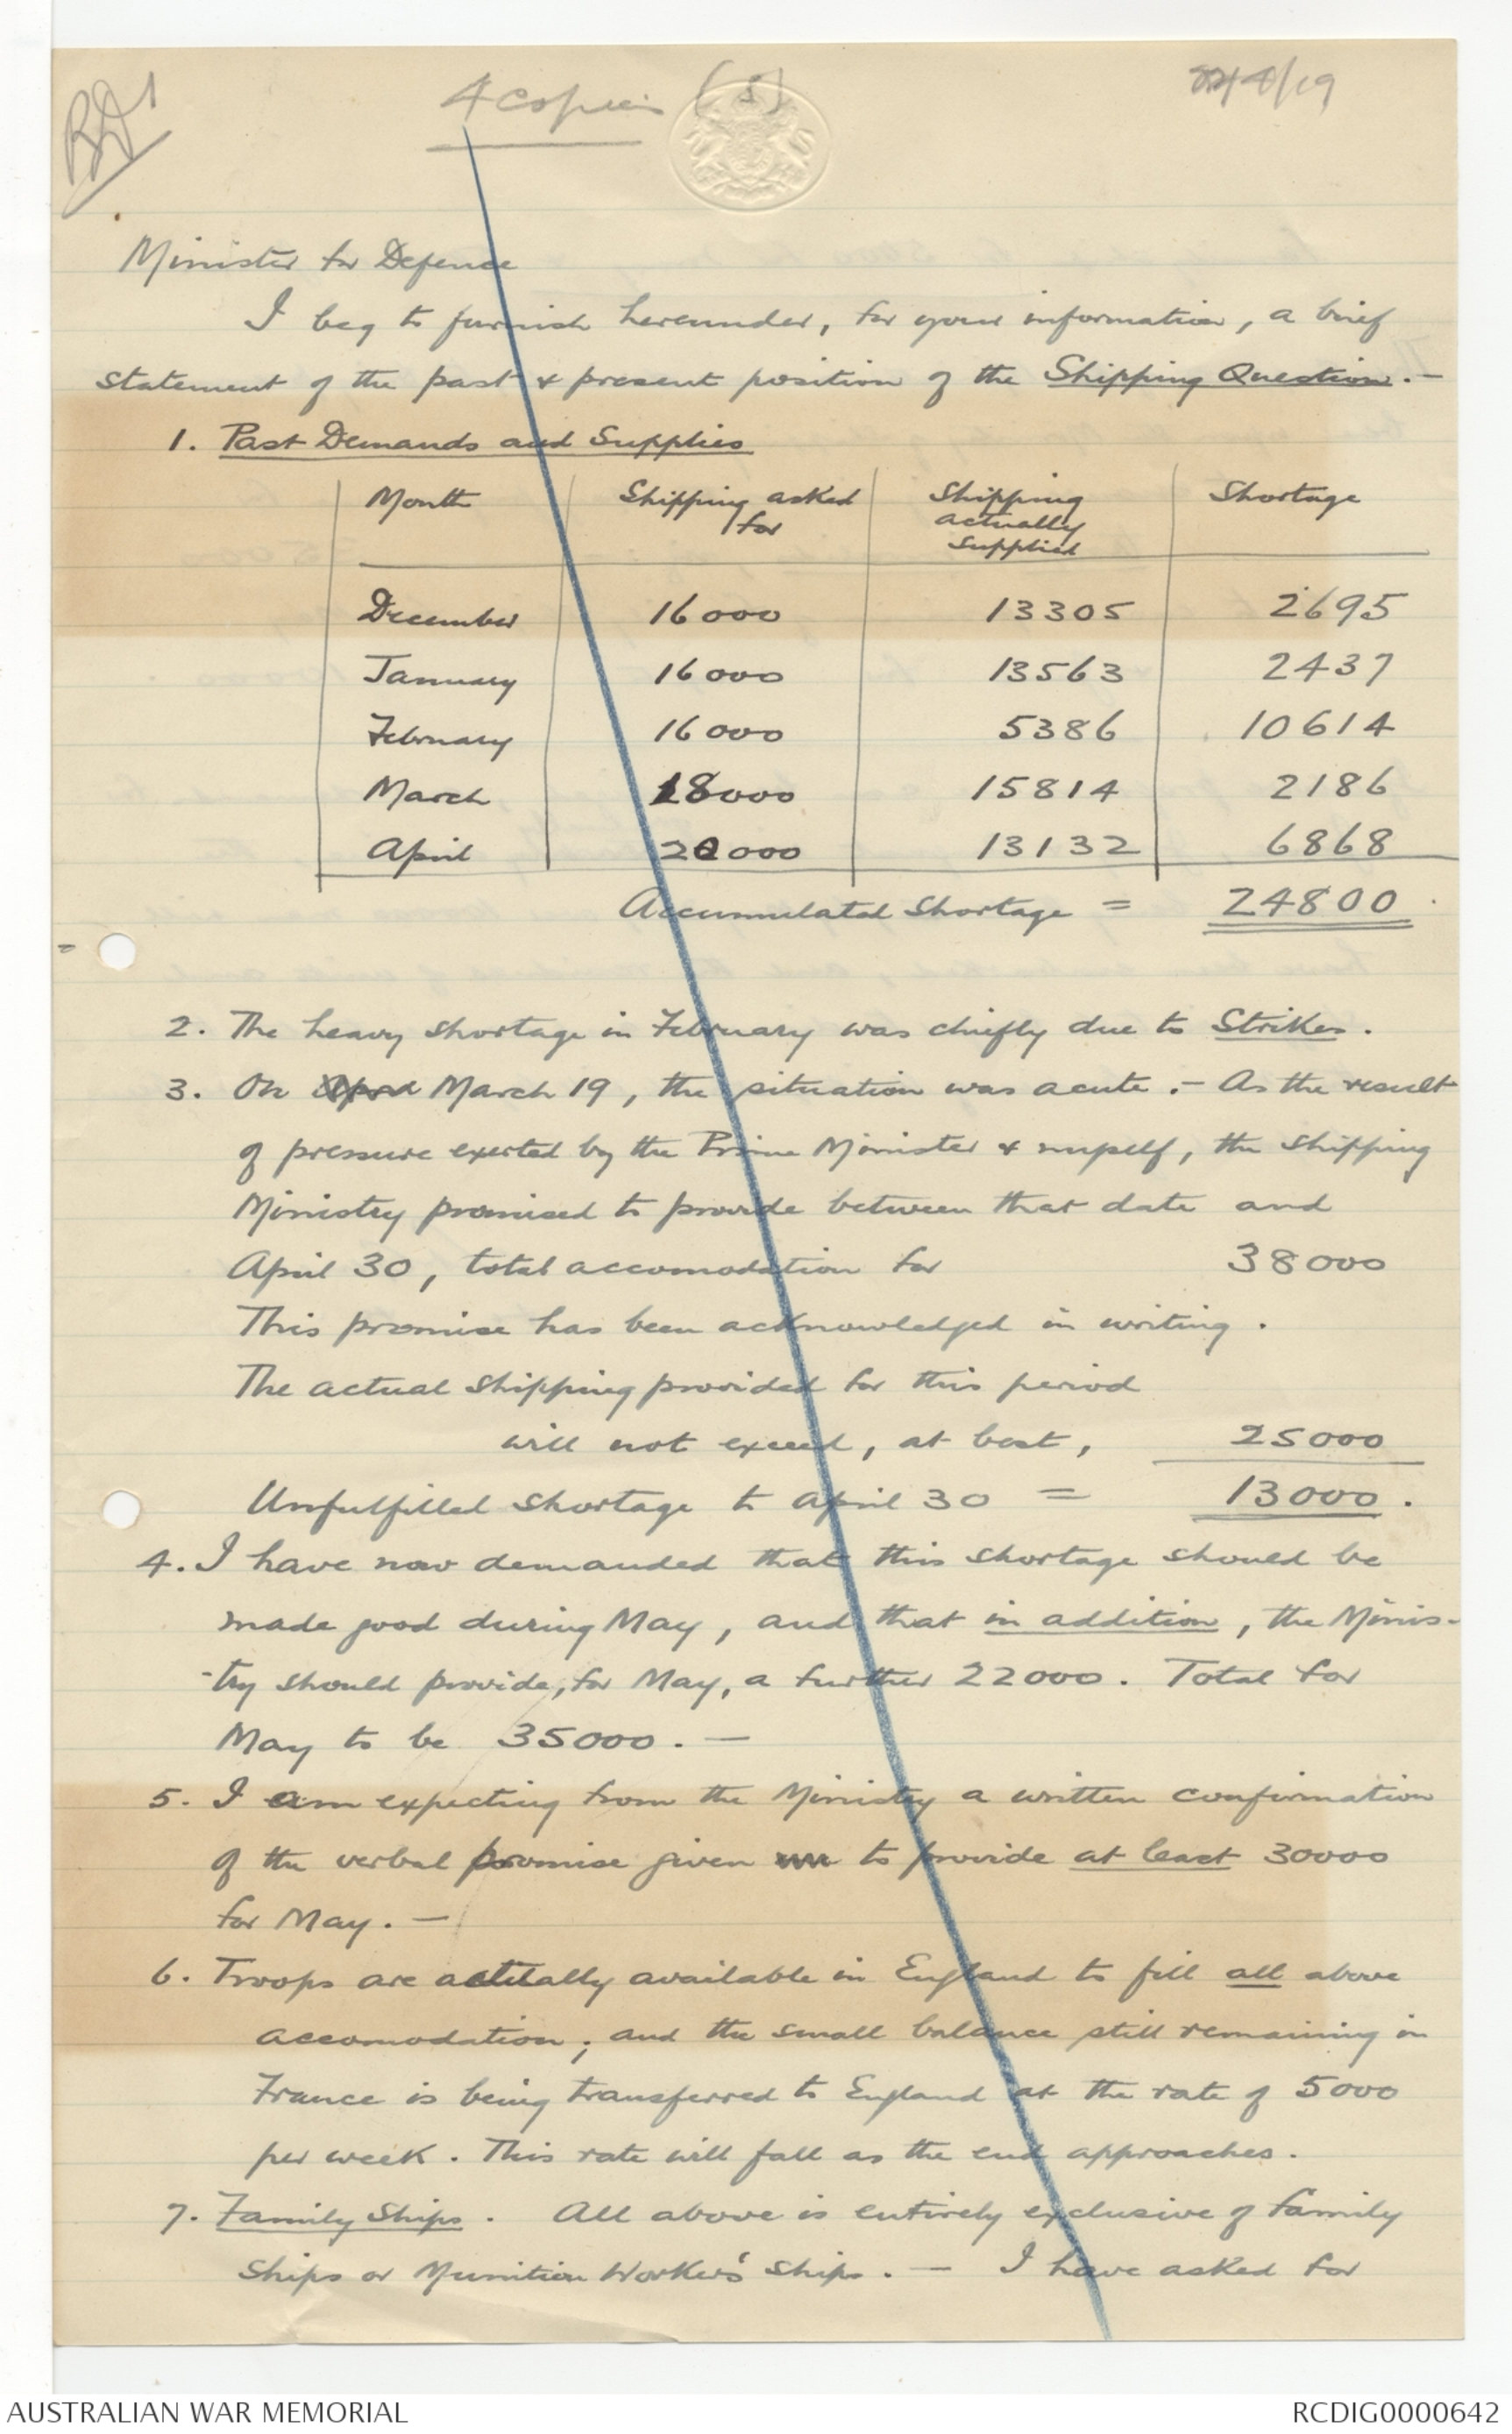 4 copies (5)
/4/19
Minister for Defence
I beg to furnish hereunder, for your information, a brief
statement of the past & present position of the Shipping Question. —
1. Past Demands and Supplies
Month Shipping asked for Shipping actually supplied Shortage
December 16000 13305 2695
January 16000 13563 2437
February 16000 5386 10614
March 18000 15814 2186
April 20000 13132 6868
Accumulated Shortage = 24800
2. The heavy shortage in February was chiefly due to Strikes.
3. On April March 19, the situation was acute. — As the result
of pressure exerted by the Prime Minister & myself, the Shipping
Ministry promised to provide between that date and
April 30, total accomodation for 38000
This promise has been acknowledged in writing.
The actual shipping provided for this period
will not exceed, at best, 25000
Unfulfilled shortage to April 30 = 13000.
4. I have now demanded that this shortage should be
made good during May, and that in addition, the Minis-
-try should provide, for May, a further 22000. Total for
May to be 35000. —
5. I am expecting from the Ministry a written confirmation
of the verbal promise given to provide at least 30000
for May. —
6. Troops are actually available in England to fill all above
accomodation; and the small balance still remaining in
France is being transferred to England at the rate of 5000
per week. This rate will fall as the end approaches.
7. Family Ships. All above is entirely exclusive of family
ships or Munition Workers' ships. — I have asked for
AUSTRALIAN WAR MEMORIAL
RCDIG0000642